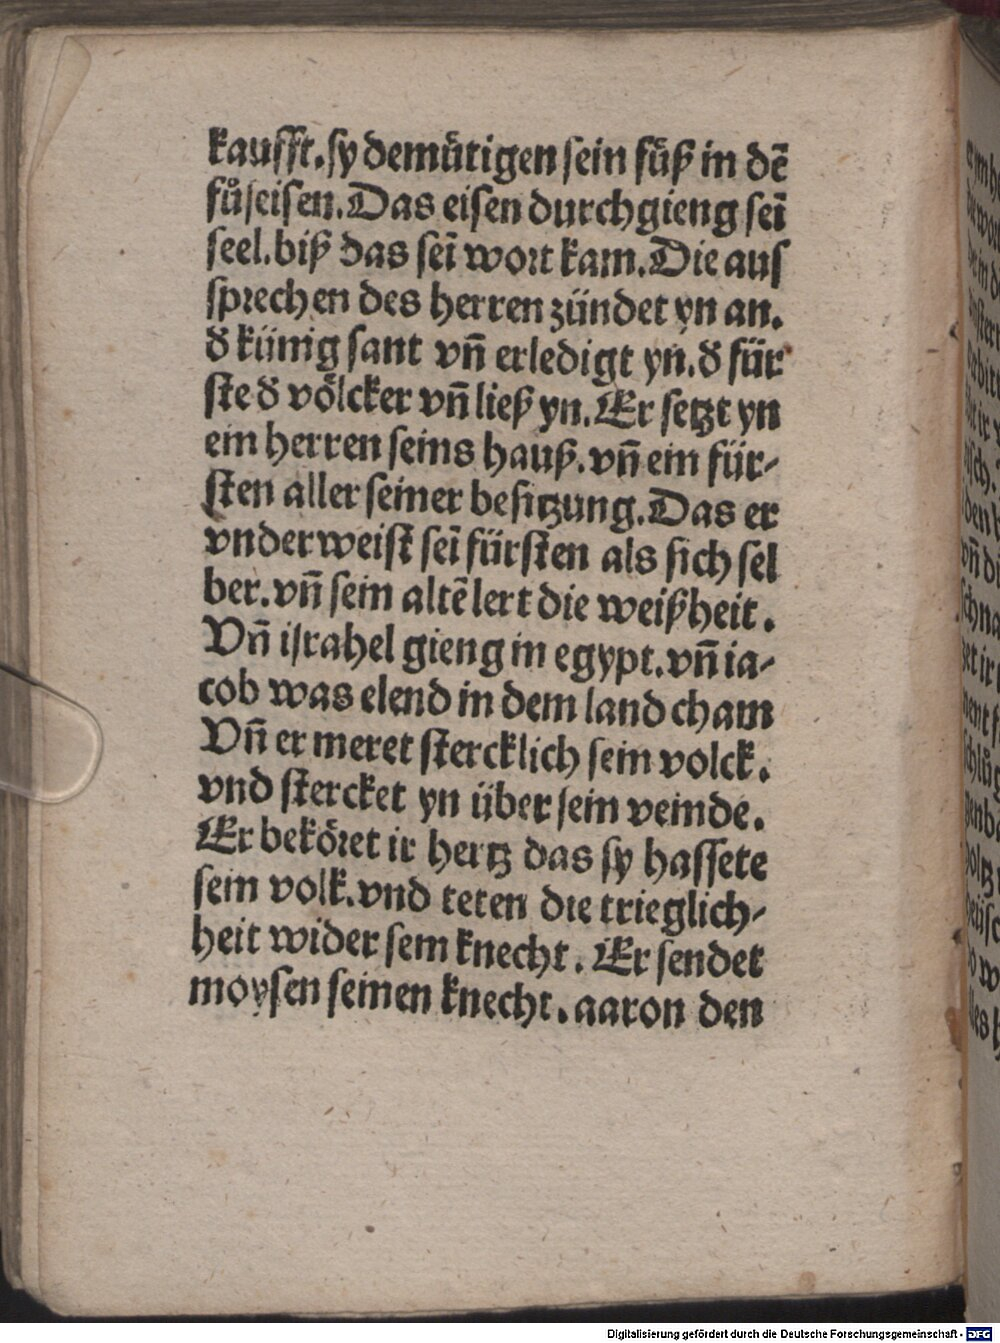 kaufft. sy demütigen sein füß in dē
fůseisen. Das eisen durchgieng sei̅
seel. biß das sei̅ wort kam. Die aus
sprechen des herren zündet yn an.
d̕ künig sant vn̄ erledigt yn. d̕ für
ste d̕ völcker vn̄ ließ yn. Er setzt yn
ein herren seins hauß. vn̄ ein für-
sten aller seiner besitzung. Das er
vnderweist sei̅ fürsten als sich sel
ber. vn̄ sein altē lert die weißheit.
Vn̄ israhel gieng in egypt. vn̄ ia-
cob was elend in dem land cham
Vn̄ er meret stercklich sein volck.
vnd stercket yn über sein veinde.
Er beköret ir hertz das sy hassete
sein volk. vnd teten die trieglich-
heit wider sein knecht. Er sendet
moysen seinen knecht. aaron den
Digitalisierung gefördert durch die Deutsche Forschungsgemeinschaft - DFG